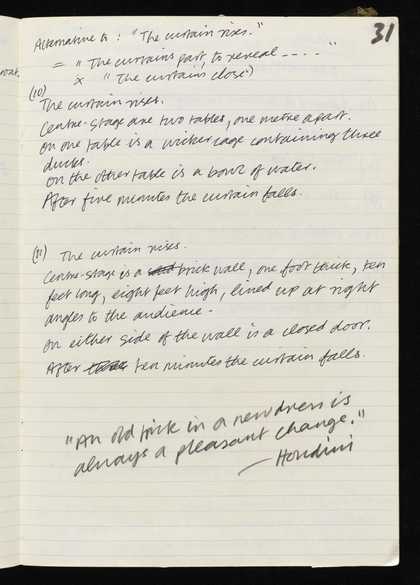 31
Alternative to : "The curtain rises."
= "The curtains part, to reveal ----"
x "The curtains close")
(10)
The curtain rises.
Centre-stage are two tables, one metre apart.
on one table is a wicker cage containing three
ducks.
on the other table is a bowl of water.
After five minutes the curtain falls.
(11) The curtain rises.
Centre-stage is a brick wall, one foot thick, ten
feet long, eight feet high, lined up at right
angles to the audience.
on either side of the wall is a closed door.
After ten minutes the curtain falls.
"An old trick in a new dress is
always a pleasant change."
— Houdini